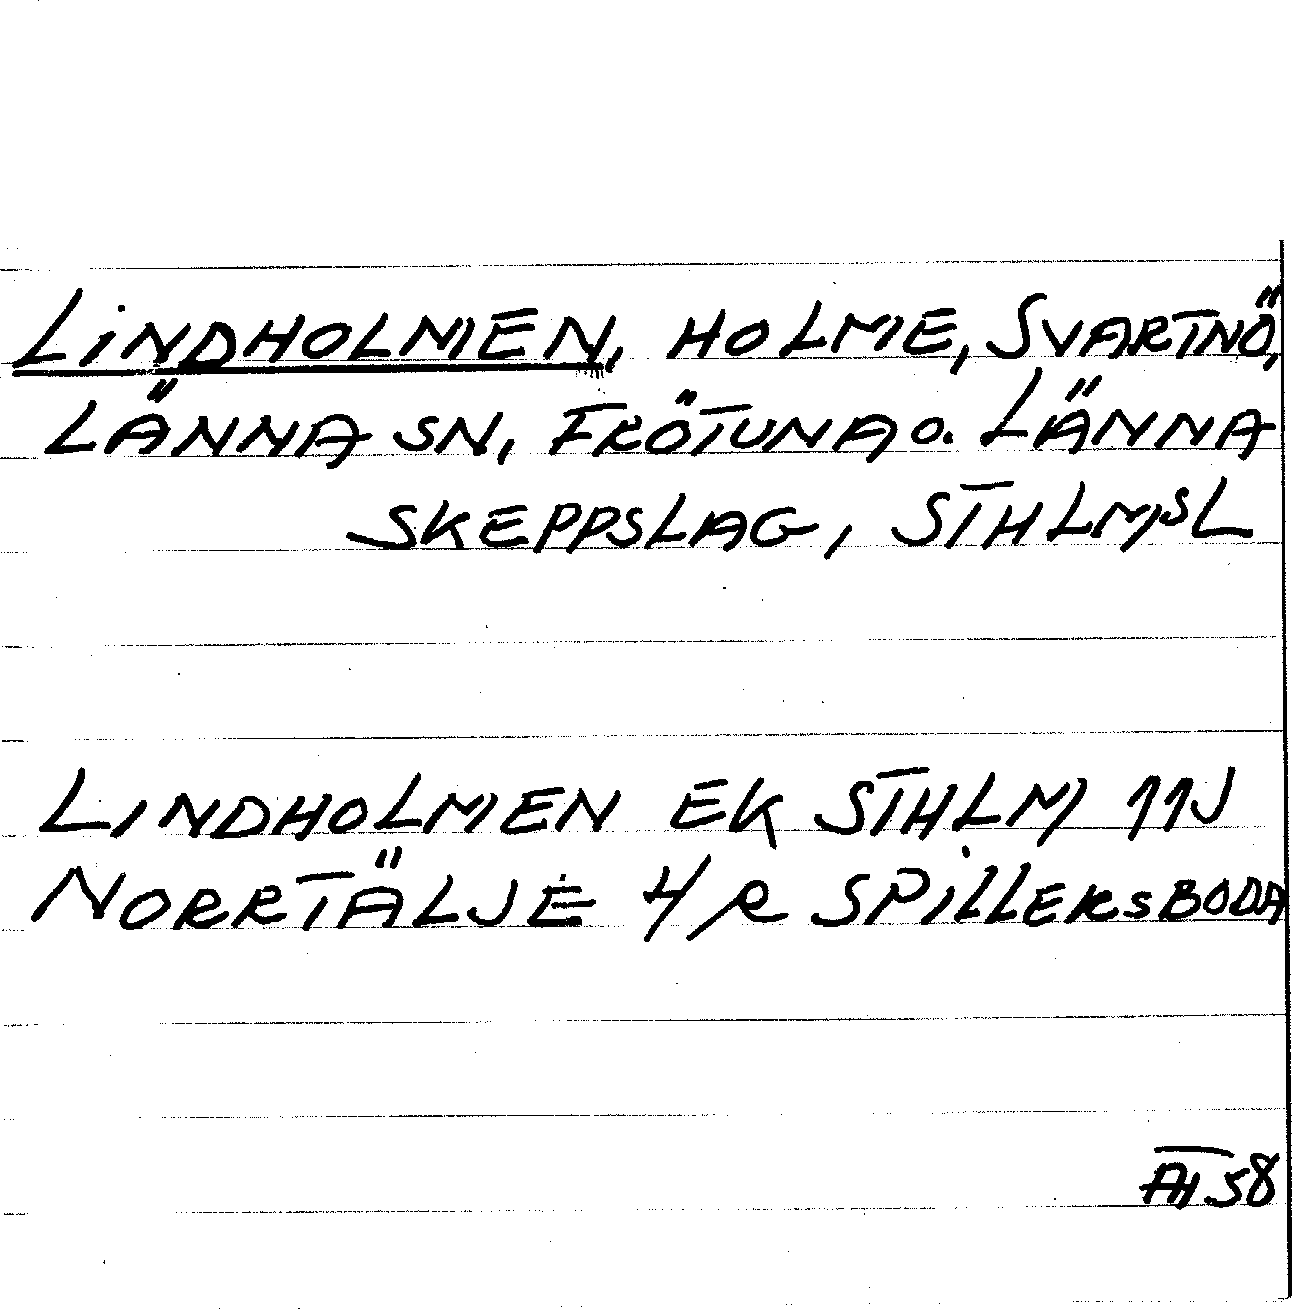 LINDHOLMEN, HOLME, SVARTNÖ,
LÄNNA SN, FRÖTUNA O. LÄNNA
SKEPPSLAG, STHLMSL
LINDHOLMEN EK STHLM 11J
NORRTÄLJE 4/R SPILLERSBODA
AH 58